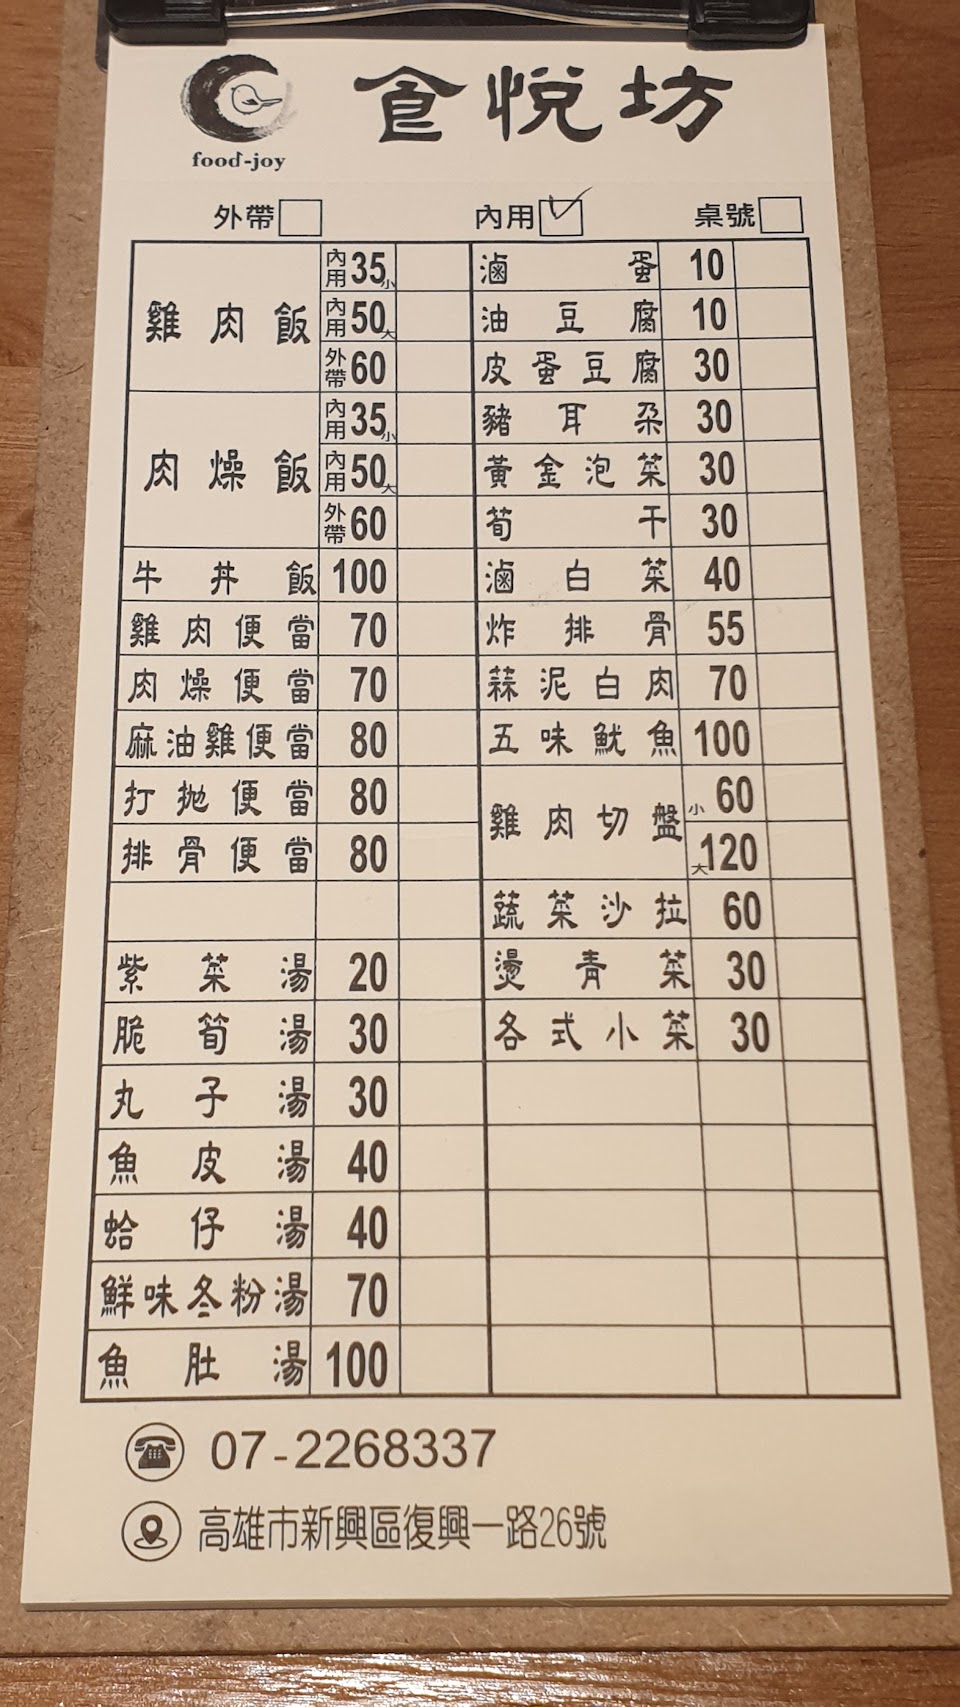 食悅坊
food-joy
外帶 內用 桌號
雞肉飯 內用 35 小
內用 50 大
外帶 60
肉燥飯 內用 35 小
內用 50 大
外帶 60
牛丼飯 100
雞肉便當 70
肉燥便當 70
麻油雞便當 80
打拋便當 80
排骨便當 80
紫菜湯 20
脆筍湯 30
丸子湯 30
魚皮湯 40
蛤仔湯 40
鮮味冬粉湯 70
魚肚湯 100
滷蛋 10
油豆腐 10
皮蛋豆腐 30
豬耳朵 30
黃金泡菜 30
筍干 30
滷白菜 40
炸排骨 55
蒜泥白肉 70
五味魷魚 100
雞肉切盤 小 60
大 120
蔬菜沙拉 60
燙青菜 30
各式小菜 30
07-2268337
高雄市新興區復興一路26號